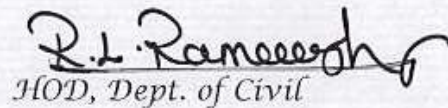 R.L. Rameeesh
HOD, Dept. of Civil